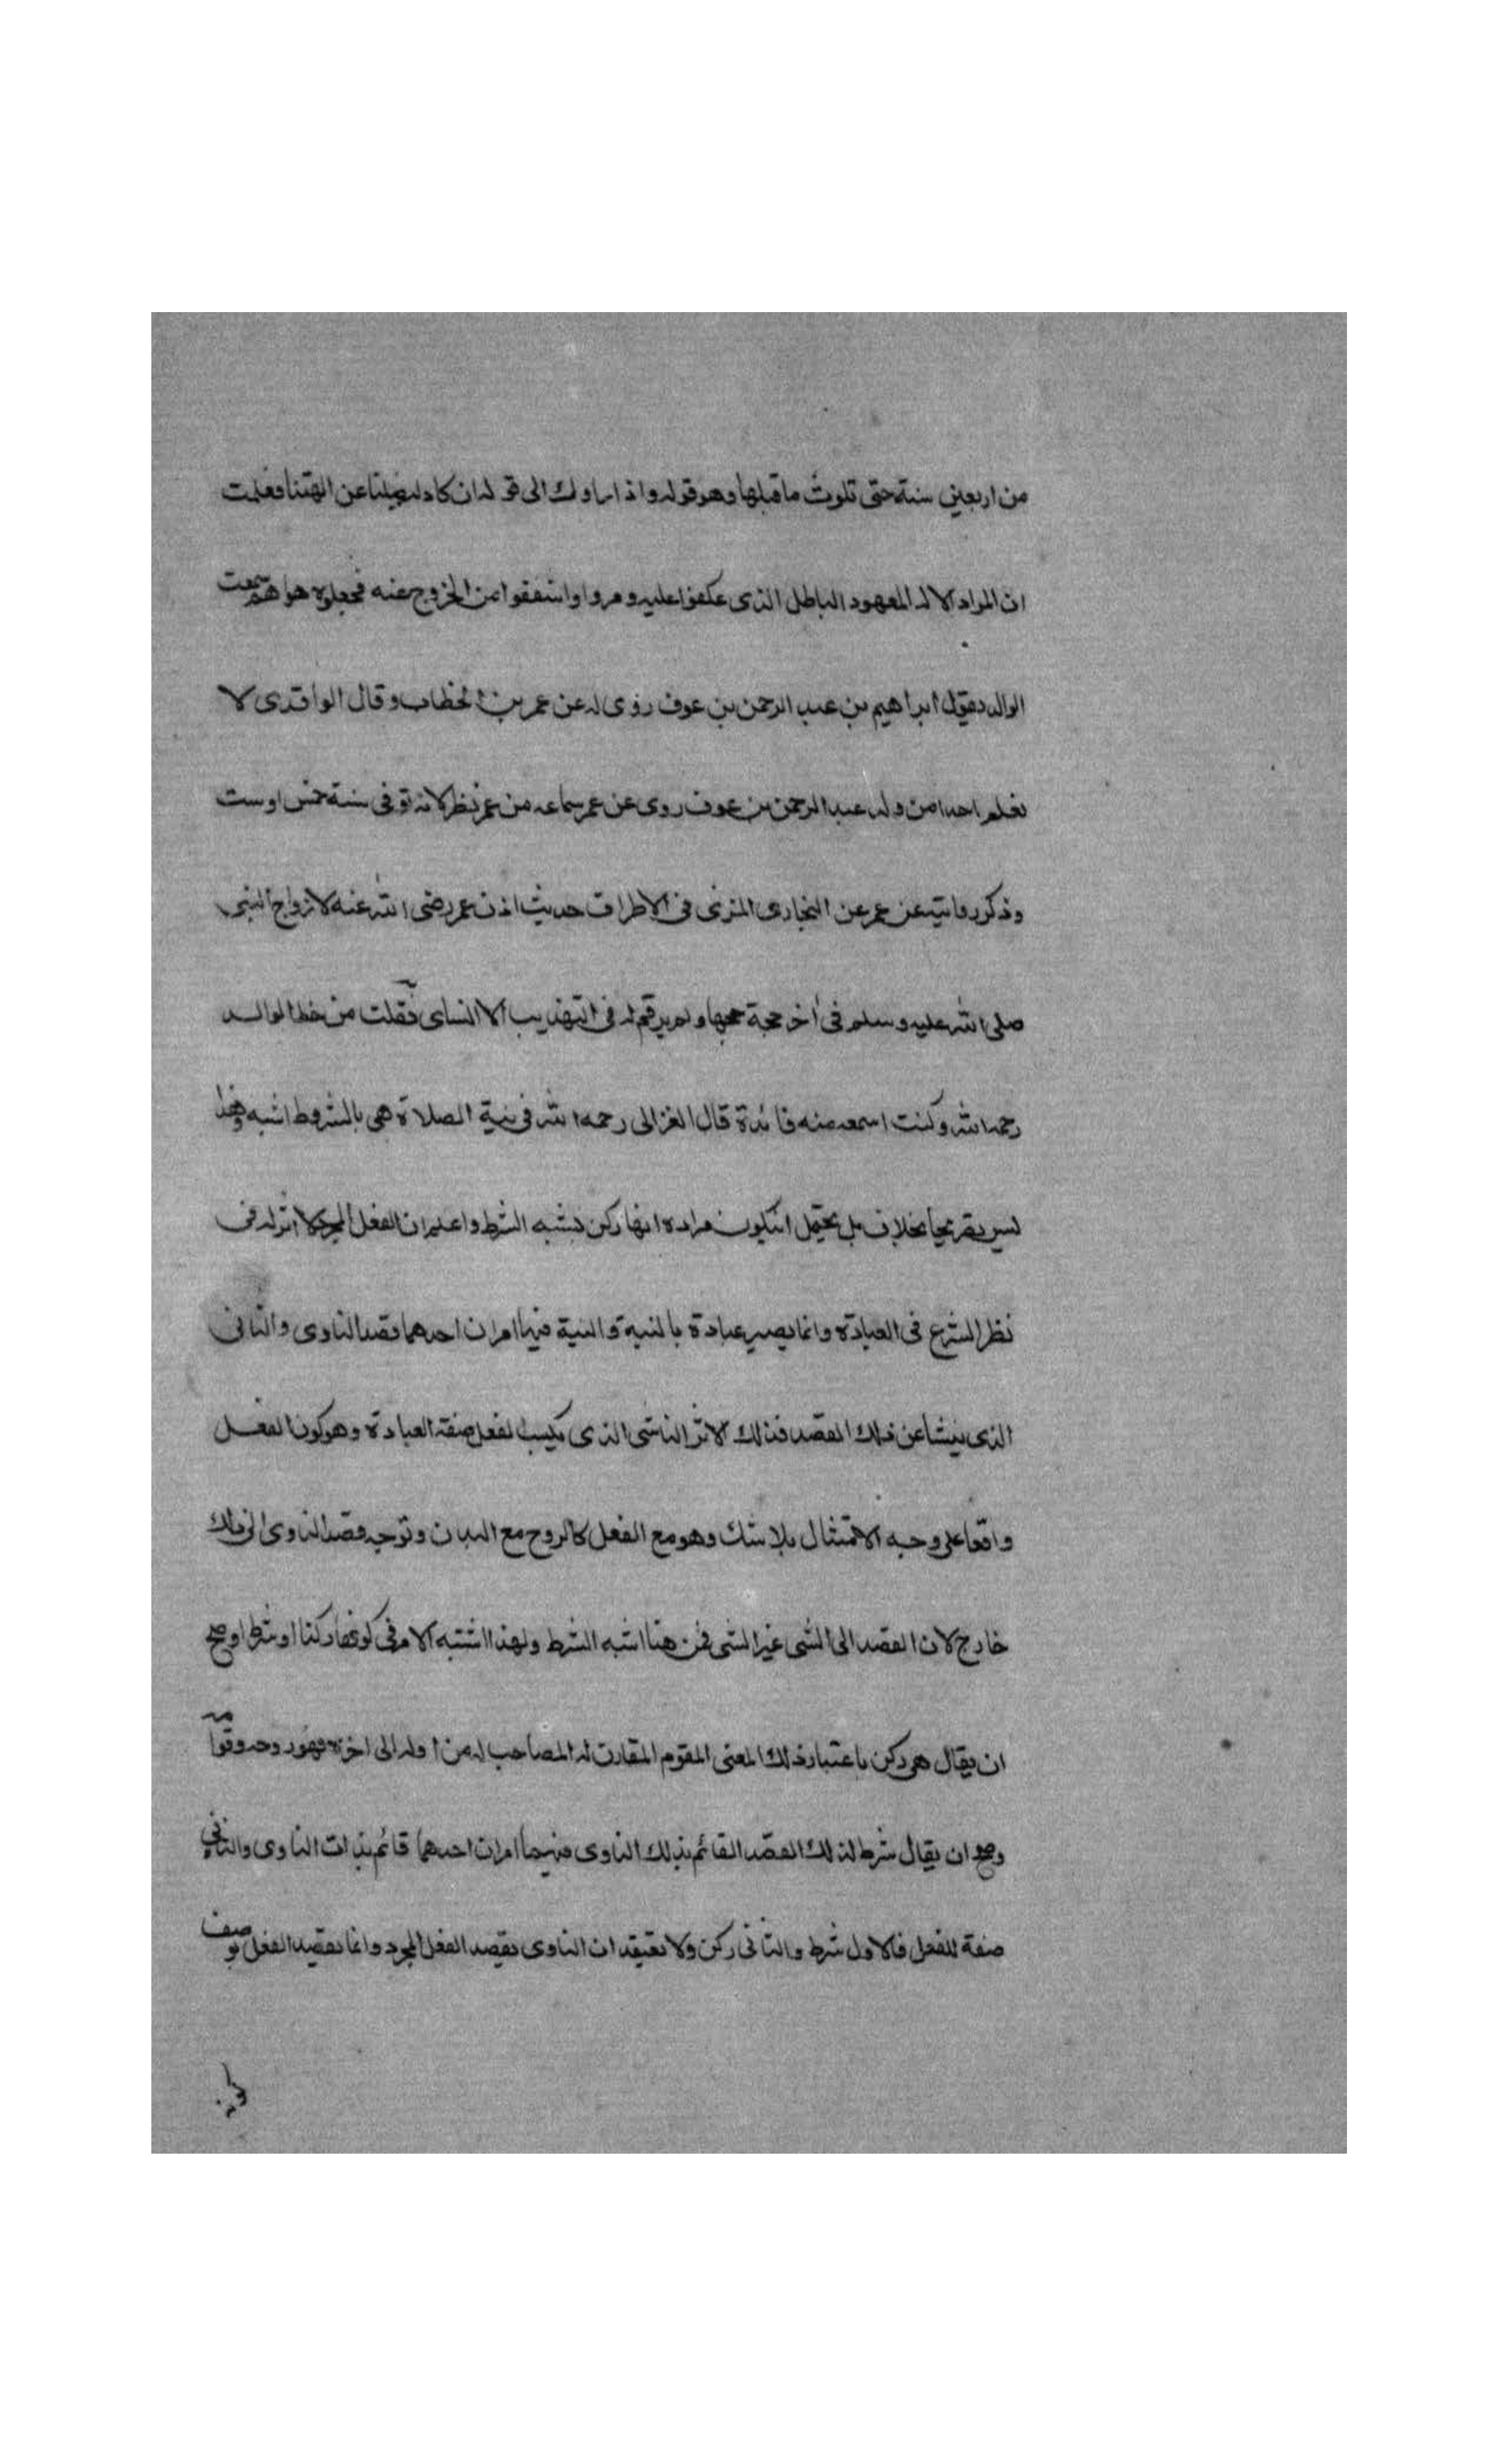 من اربعين سنة حتى تلوت ما قبلها وهو قوله واذا راوك الى قوله ان كاد ليضلنا عن الهتنا فعلمت
ان المراد الاله المعهود الباطل الذى عكفوا عليه و واشفقوا من الخروج عنه فجعلوه هواهم سمعت
الوالد يقول ابراهيم بن عبد الرحمن بن عوف روى له عن عمر بن الخطاب وقال الواقدى لا
نعلم احدا من ولد عبد الرحمن بن عوف روى عن عمر سماعه من عمر نظر لانه توفى سنة خمس او ست
وذكر روايته عن عمر عن البخارى المزى فى الاطراف حديث اذن عمر رضى الله عنه لازواج النبى
صلى الله عليه وسلم فى اخر حجة حجها ولم يرقم له فى التهذيب الا النساى نقلت من خط الوالد
رحمه الله وكنت اسمعه منه فائدة قال الغزالى رحمه الله فى نية الصلاة هى بالشروط اشبه وهذا
ليس تصريحا بخلاف بل يحتمل ان يكون مراده انها ركن يشبه الشرط واعلم ان الفعل المجرد لا اثر له فى
نظر الشرع فى العبادة وانما يصير عبادة بالنية والنية فيها امران احدهما قصد الناوى والثانى
الذى ينشا عن ذلك القصد فذلك الاثر الناشى الذى يكسب الفعل صفة العبادة وهو كون الفعل
واقعا على وجه الامتثال بلا شك وهو مع الفعل كالروح مع البدن وتوجه قصد الناوى الى ذلك
خارج لان القصد الى الشى غير الشى فمن هنا اشبه الشرط ولهذا اشتبه الامر فى كونها ركنا او شرطا وصح
ان يقال هى ركن باعتبار ذلك المعنى المقوم المقارن له المصاحب له من اوله الى اخره فهو روحه وقوامه
وصح ان يقال شرط لذلك القصد القائم بذلك الناوى فهما امران احدهما قائم بذات الناوى والثانى
صفة للفعل فالاول شرط والثانى ركن ولا تعتقد ان الناوى يقصد الفعل المجرد وانما يقصد الفعل بوصف
كونه